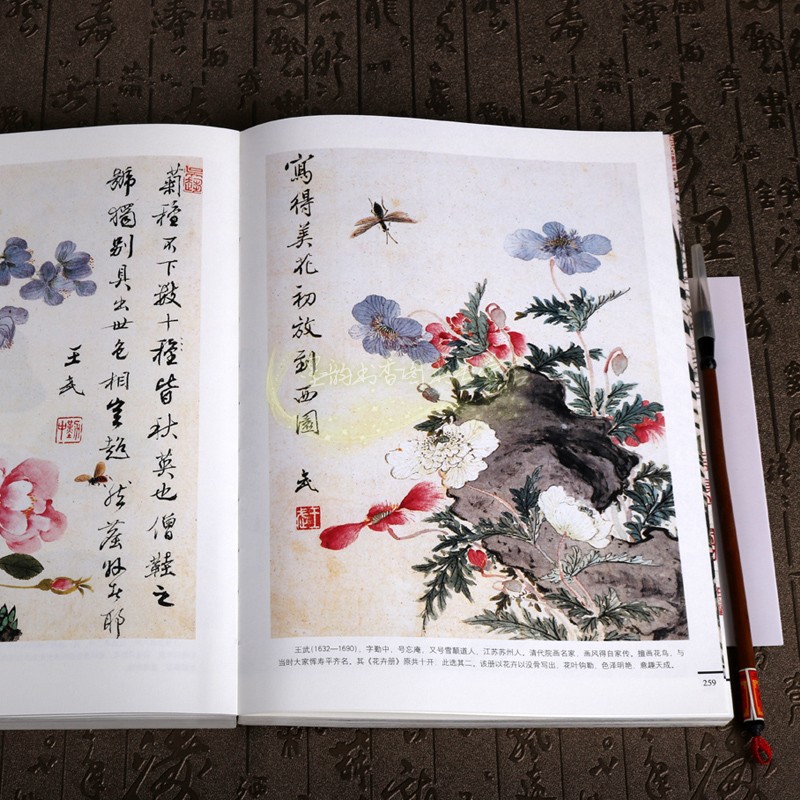 菊種不下數十種皆秋英也僧鞋之
號獨别具出世色相超然者耶
王武
寫得美花初放到西園
武
王武
王武(1632—1690)，字勤中，号忘庵，又号雪颠道人，江苏苏州人。清代院画名家，画风得自家传。擅画花鸟，与
当时大家恽寿平齐名。其《花卉册》原共十开，此选其二。该册以花卉以没骨写出，花叶钩勒，色泽明艳，意趣天成。
259